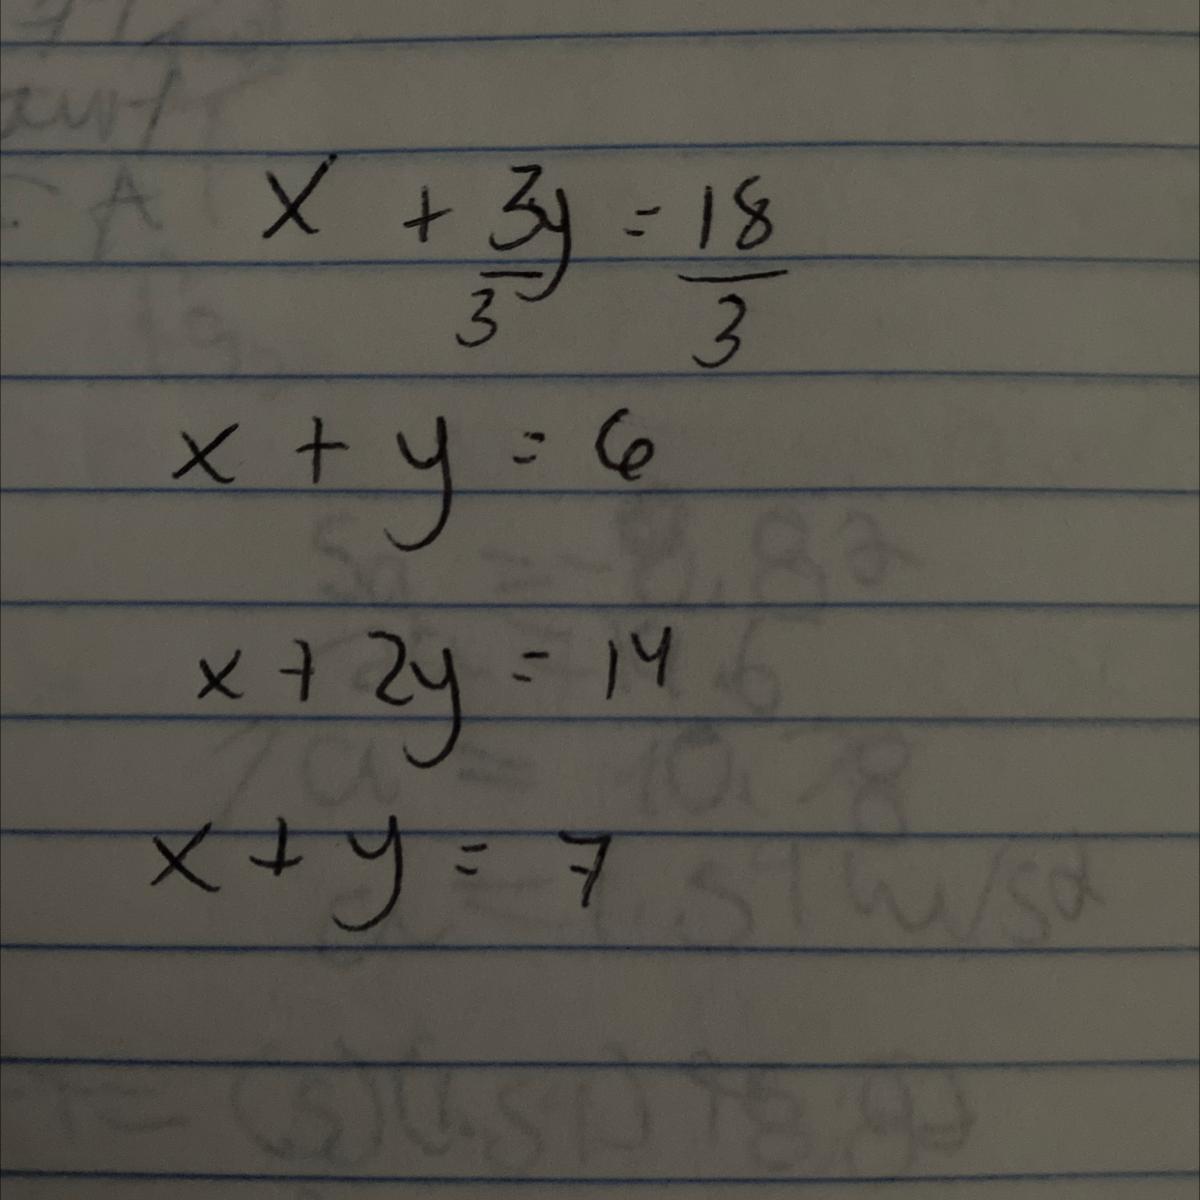 x + 3y = 18
3 3
x + y = 6
x + 2y = 14
x + y = 7